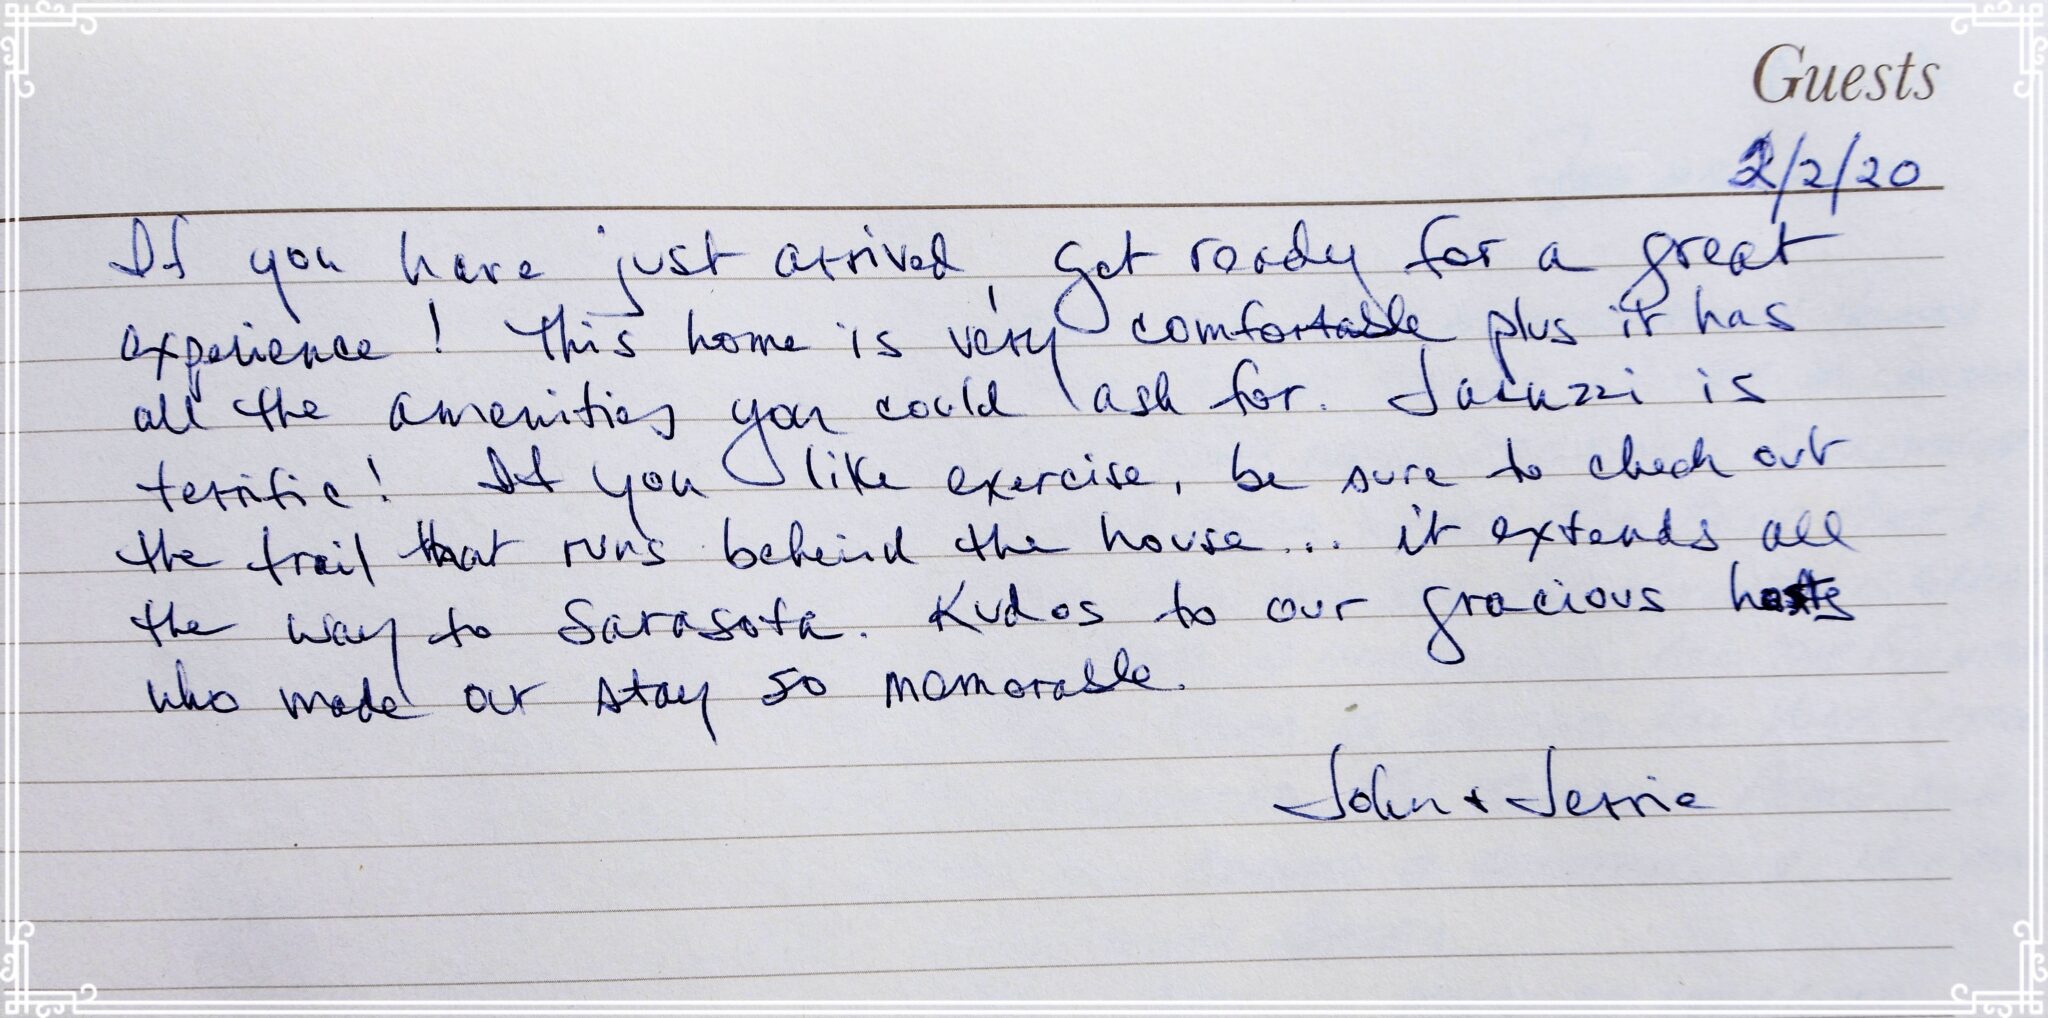 Guests
2/2/20
If you have just arrived, get ready for a great
experience! This home is very comfortable plus it has
all the amenities you could ask for. Jacuzzi is
terrific! If you like exercise, be sure to check out
the trail that runs behind the house... it extends all
the way to Sarasota. Kudos to our gracious hosts
who made our stay so memorable.
John + Jerrie